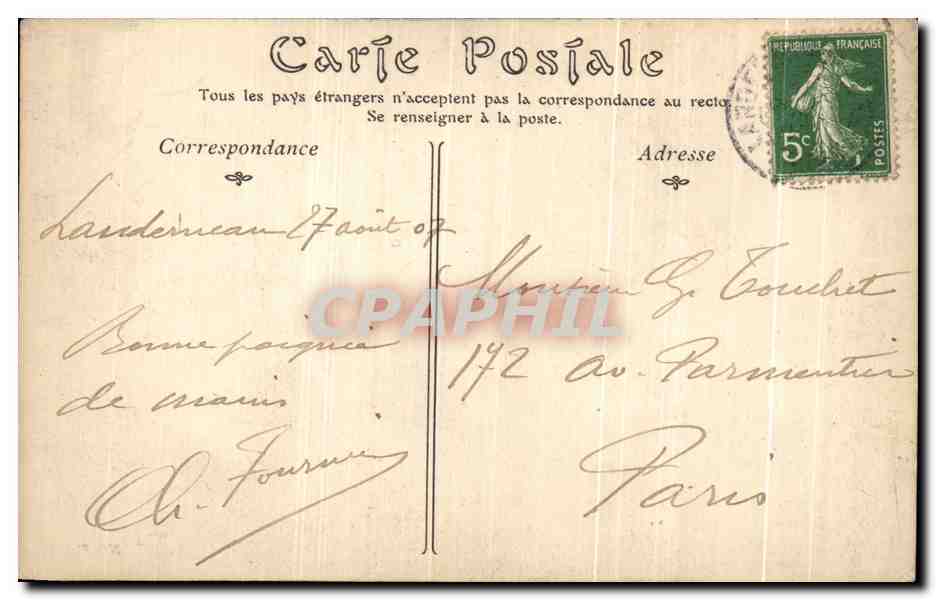 Carte Postale
Tous les pays étrangers n'acceptent pas la correspondance au recto
Se renseigner à la poste.
RÉPUBLIQUE FRANÇAISE
5c
POSTES
LANDE
Correspondance
Landerneau 27 août 07
Bonne poignée
de mains
Ch. Fournier
Adresse
Monsieur G. Touchet
172 av. Parmentier
Paris
CPAPHIL